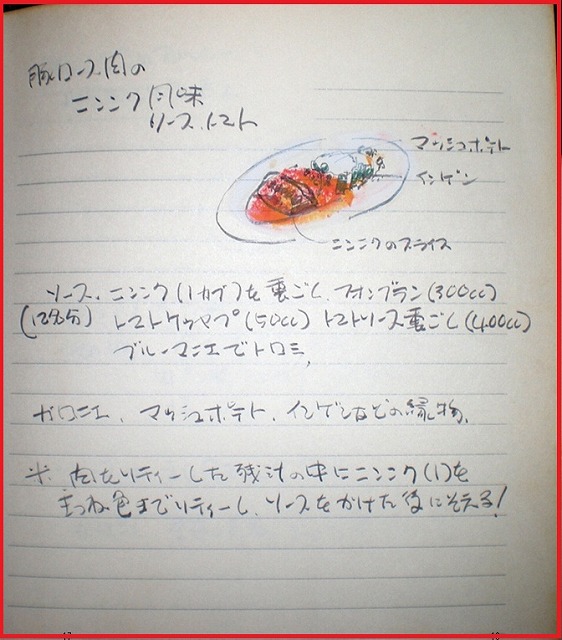 豚ロース肉の
ニンニク風味
ソース、トマト
マッシュポテト
インゲン
ニンニクのスライス
ソース、ニンニク(1カブ)を裏ごし、フォンブラン(300cc)
(12名分) トマトケチャプ(50cc) トマトソース裏ごし(400cc)
ブルーマニエでトロミ、
ガロニエ、マッシュポテト、インゲンなどの緑物、
※ 肉をソティーした残汁の中にニンニク(1)を
きつね色までソティーし、ソースをかけた後にそえる!